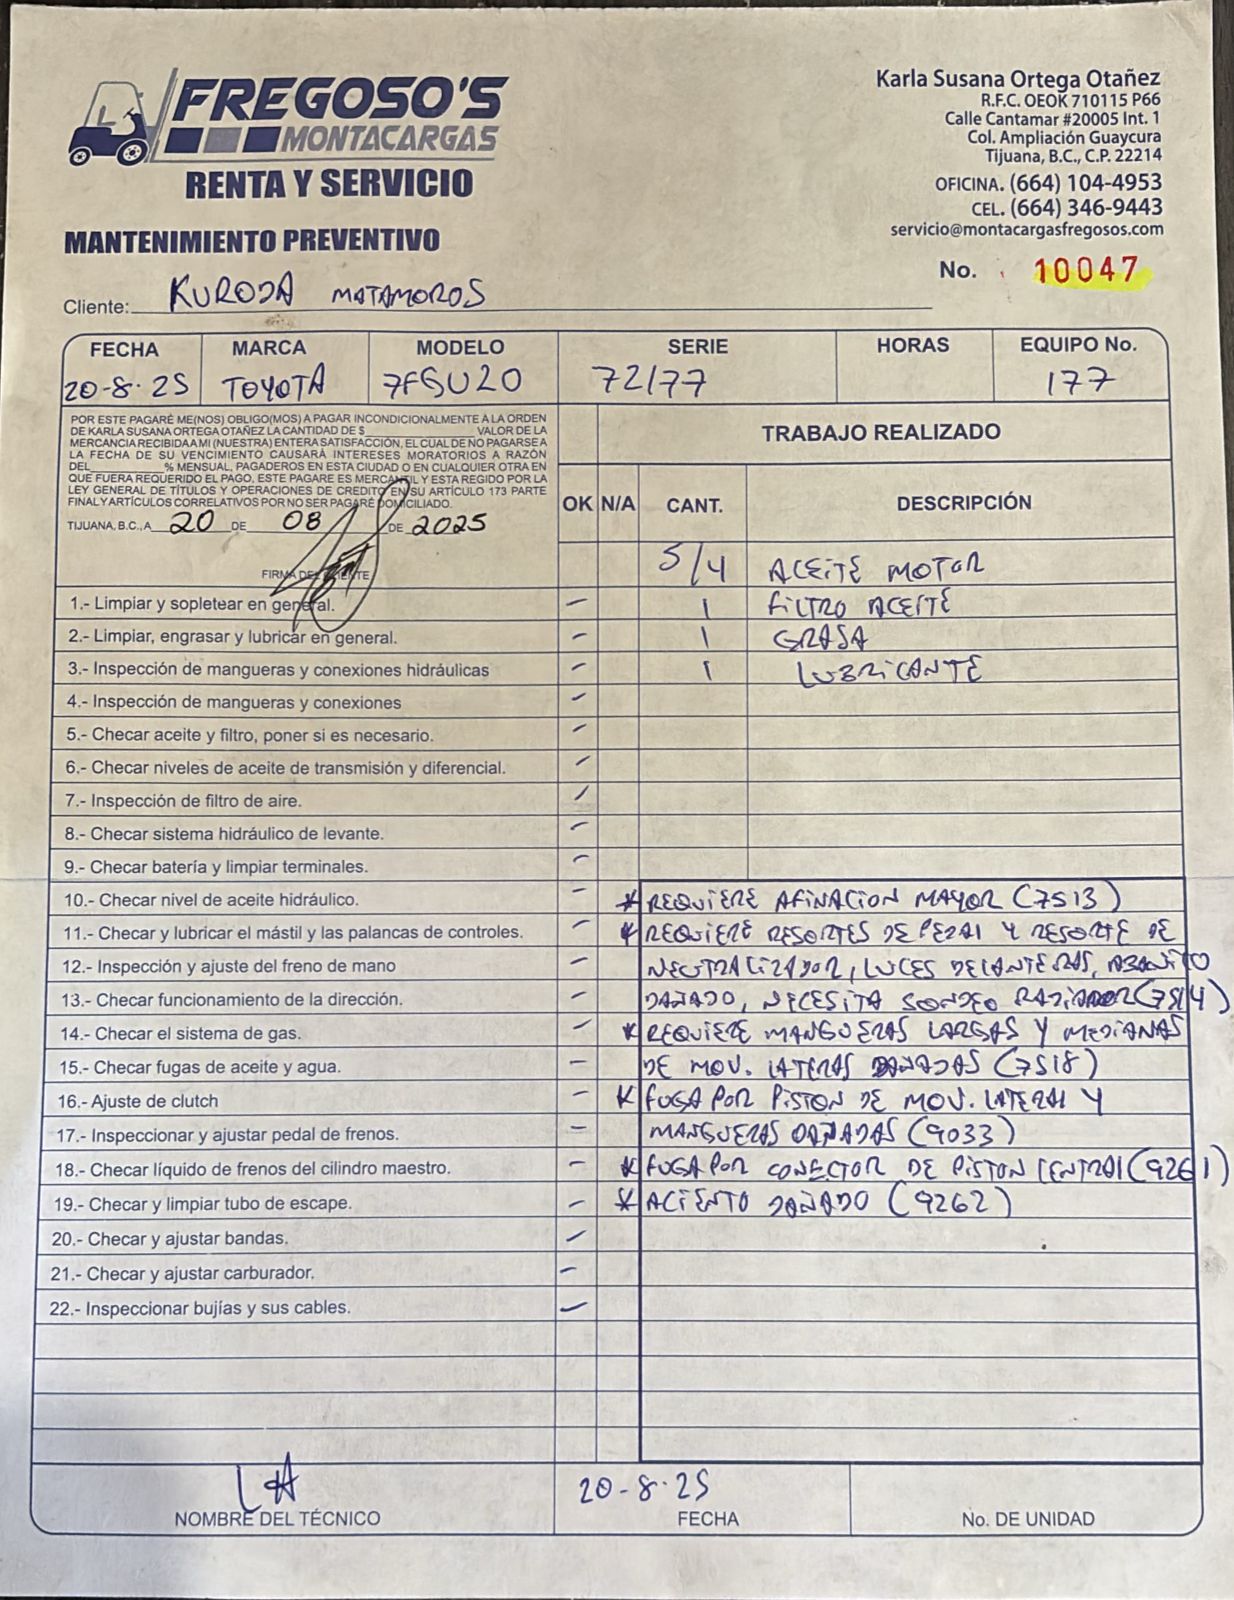 FREGOSO'S
MONTACARGAS
RENTA Y SERVICIO
MANTENIMIENTO PREVENTIVO
Karla Susana Ortega Otañez
R.F.C. OEOK 710115 P66
Calle Cantamar #20005 Int. 1
Col. Ampliación Guaycura
Tijuana, B.C., C.P. 22214
OFICINA. (664) 104-4953
CEL. (664) 346-9443
servicio@montacargasfregosos.com
No. 10047
Cliente: KURODA MATAMOROS
FECHA MARCA MODELO SERIE HORAS EQUIPO No.
20-8-25 TOYOTA 7FGU20 72177 177
POR ESTE PAGARÉ ME(NOS) OBLIGO(MOS) A PAGAR INCONDICIONALMENTE A LA ORDEN
DE KARLA SUSANA ORTEGA OTAÑEZ LA CANTIDAD DE $ VALOR DE LA
MERCANCIA RECIBIDA A MI (NUESTRA) ENTERA SATISFACCIÓN, EL CUAL DE NO PAGARSE A
LA FECHA DE SU VENCIMIENTO CAUSARÁ INTERESES MORATORIOS A RAZÓN
DEL % MENSUAL, PAGADEROS EN ESTA CIUDAD O EN CUALQUIER OTRA EN
QUE FUERA REQUERIDO EL PAGO, ESTE PAGARE ES MERCANTIL Y ESTA REGIDO POR LA
LEY GENERAL DE TÍTULOS Y OPERACIONES DE CREDITO EN SU ARTÍCULO 173 PARTE
FINAL Y ARTÍCULOS CORRELATIVOS POR NO SER PAGARÉ DOMICILIADO.
TIJUANA, B.C., A 20 DE 08 DE 2025
FIRMA DEL CLIENTE
TRABAJO REALIZADO
OK N/A CANT. DESCRIPCIÓN
5/4 ACEITE MOTOR
1.- Limpiar y sopletear en general. 1 FILTRO ACEITE
2.- Limpiar, engrasar y lubricar en general. 1 GRASA
3.- Inspección de mangueras y conexiones hidráulicas 1 LUBRICANTE
4.- Inspección de mangueras y conexiones
5.- Checar aceite y filtro, poner si es necesario.
6.- Checar niveles de aceite de transmisión y diferencial.
7.- Inspección de filtro de aire.
8.- Checar sistema hidráulico de levante.
9.- Checar batería y limpiar terminales.
10.- Checar nivel de aceite hidráulico. * REQUIERE AFINACION MAYOR (7513)
11.- Checar y lubricar el mástil y las palancas de controles. * REQUIERE RESORTES DE PEDAL Y RESORTE DE
12.- Inspección y ajuste del freno de mano NEUTRALIZADOR, LUCES DELANTERAS, ABANICO
13.- Checar funcionamiento de la dirección. DAÑADO, NECESITA SONDEO RADIADOR (7514)
14.- Checar el sistema de gas. * REQUIERE MANGUERAS LARGAS Y MEDIANAS
15.- Checar fugas de aceite y agua. DE MOV. LATERAS DAÑADAS (7518)
16.- Ajuste de clutch * FUGA POR PISTON DE MOV. LATERAL Y
17.- Inspeccionar y ajustar pedal de frenos. MANGUERAS DAÑADAS (9033)
18.- Checar líquido de frenos del cilindro maestro. * FUGA POR CONECTOR DE PISTON CENTRAL (9261)
19.- Checar y limpiar tubo de escape. * ACIENTO DAÑADO (9262)
20.- Checar y ajustar bandas.
21.- Checar y ajustar carburador.
22.- Inspeccionar bujías y sus cables.
20-8-25
NOMBRE DEL TÉCNICO FECHA No. DE UNIDAD